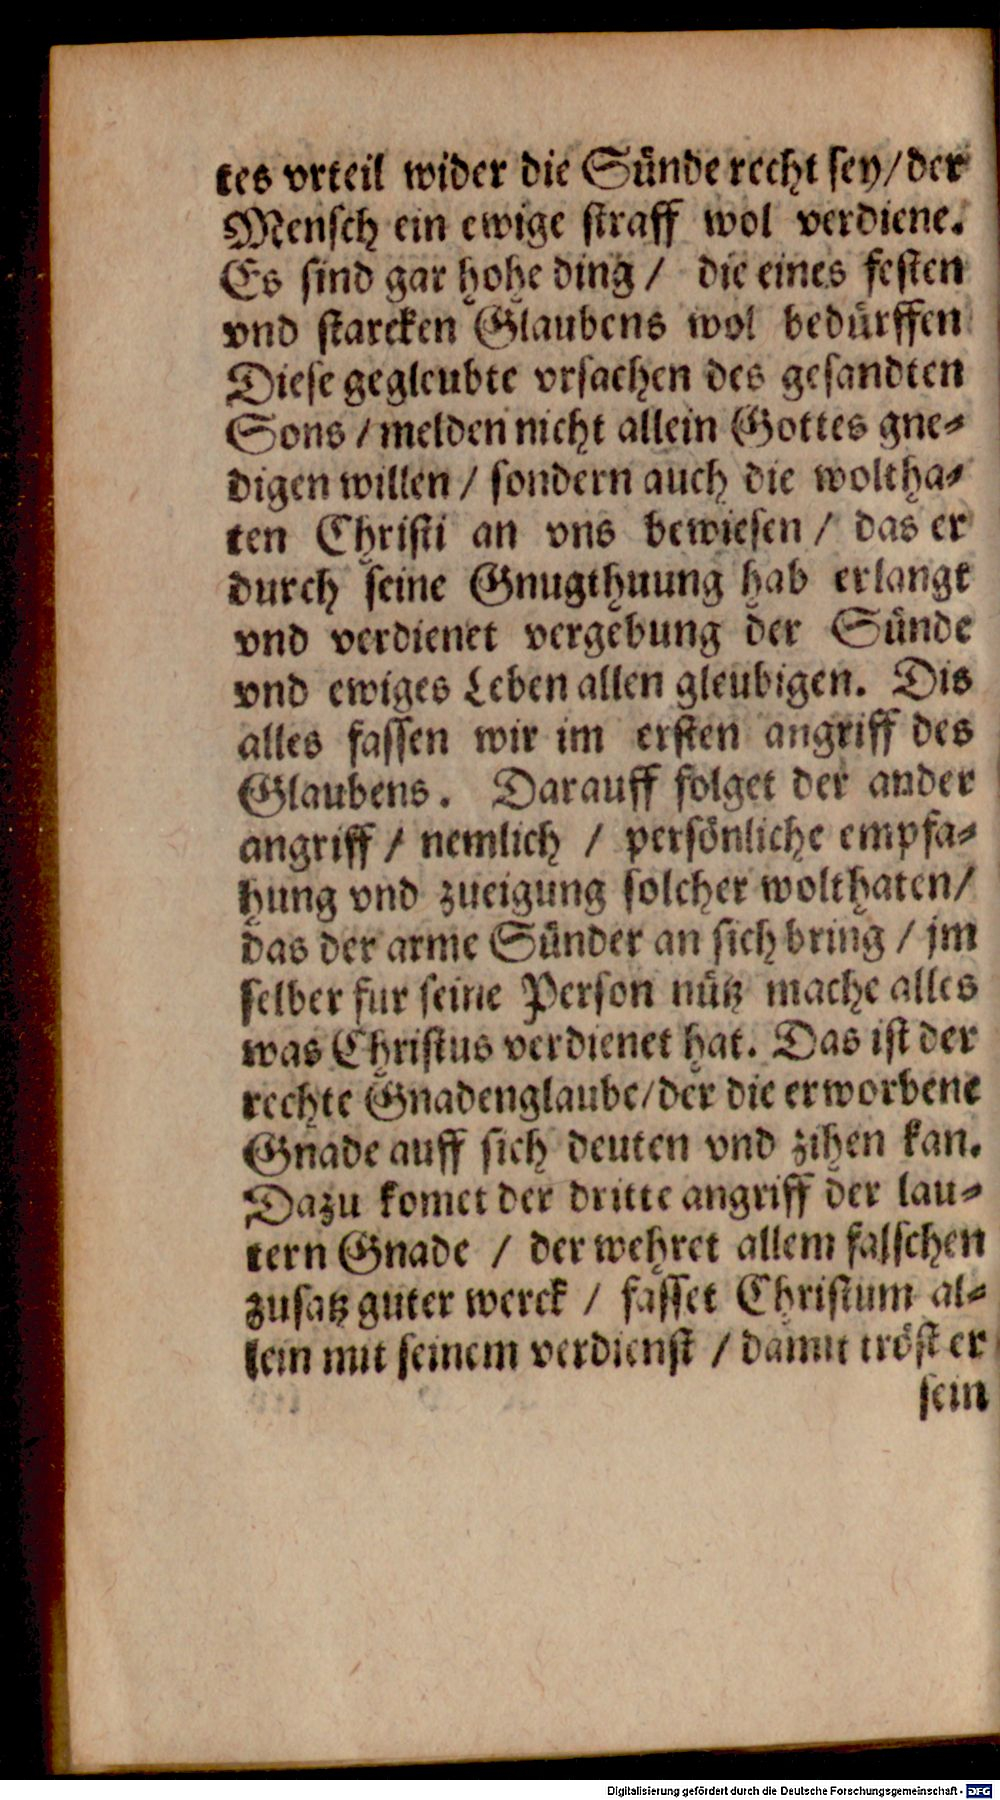 tes vrteil wider die Sünde recht sey/der
Mensch ein ewige straff wol verdiene.
Es sind gar hohe ding / die eines festen
vnd starcken Glaubens wol bedürffen
Diese gegleubte vrsachen des gesandten
Sons / melden nicht allein Gottes gne-
digen willen / sondern auch die woltha-
ten Christi an vns bewiesen / das er
durch seine Gnugthuung hab erlangt
vnd verdienet vergebung der Sünde
vnd ewiges Leben allen gleubigen. Dis
alles fassen wir im ersten angriff des
Glaubens. Darauff folget der ander
angriff / nemlich / persönliche empfa-
hung vnd zueigung solcher wolthaten/
das der arme Sünder an sich bring / jm
selber fur seine Person nütz mache alles
was Christus verdienet hat. Das ist der
rechte Gnadenglaube/der die erworbene
Gnade auff sich deuten vnd zihen kan.
Dazu komet der dritte angriff der lau-
tern Gnade / der wehret allem falschen
zusatz guter werck / fasset Christum al-
lein mit seinem verdienst / damit tröst er
sein
Digitalisierung gefördert durch die Deutsche Forschungsgemeinschaft - DFG